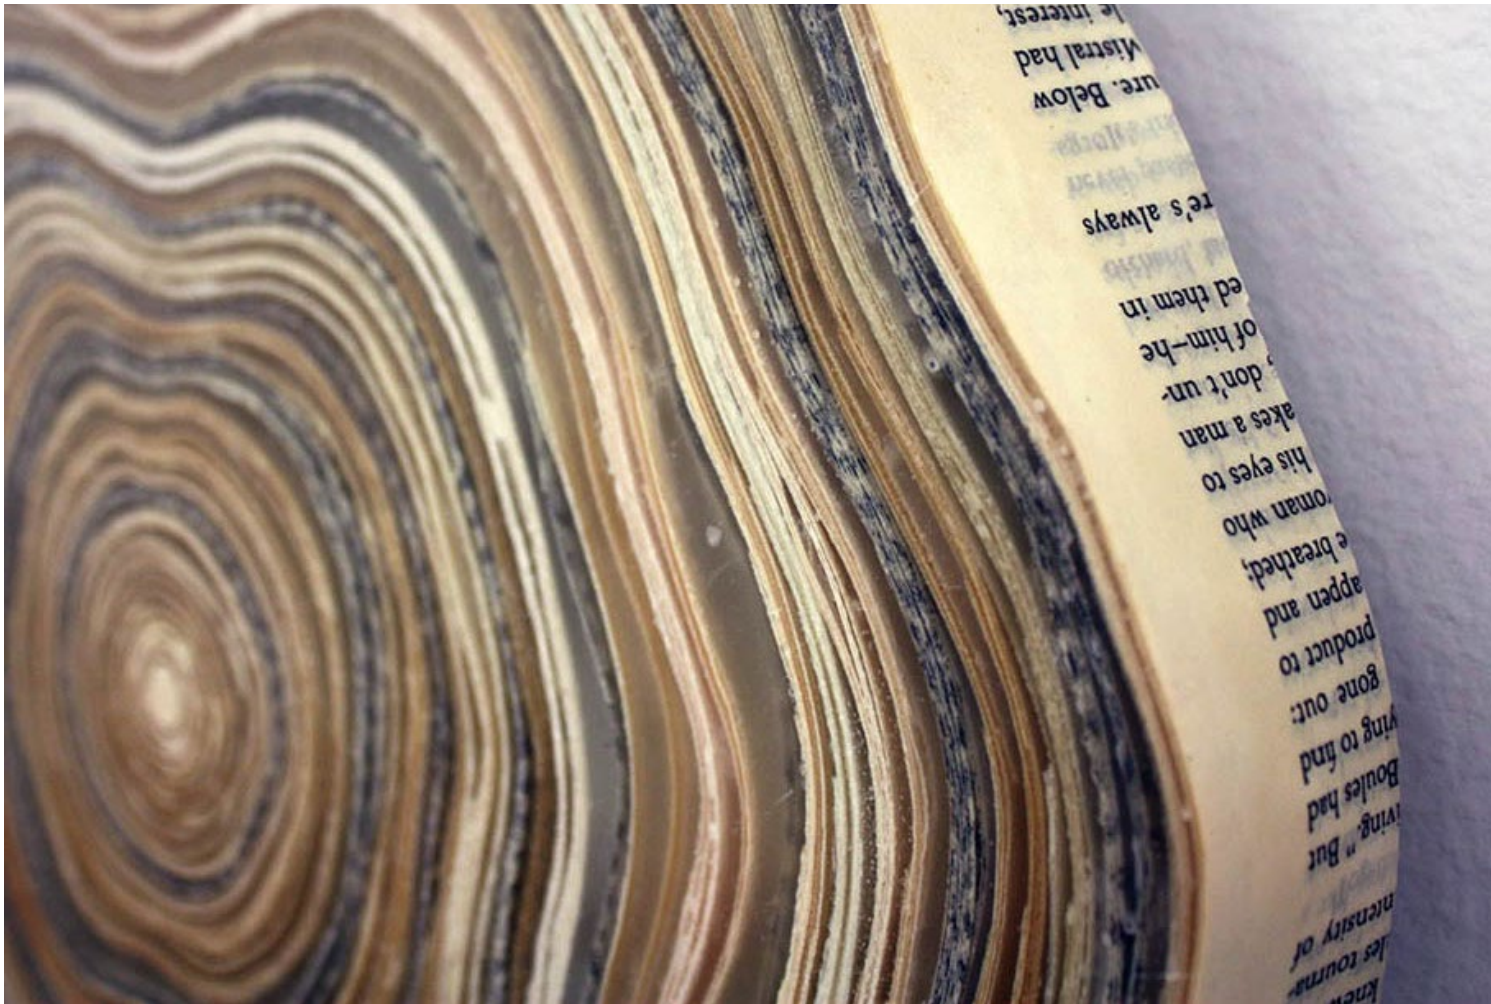 knew
les tourna-
ntensity of
iving." But
Boules had
ying to find
gone out:
product to
appen and
e breathed;
roman who
his eyes to
akes a man
, don't un-
of him—he
ed them in
re's always
ure. Below
Mistral had
le interest,